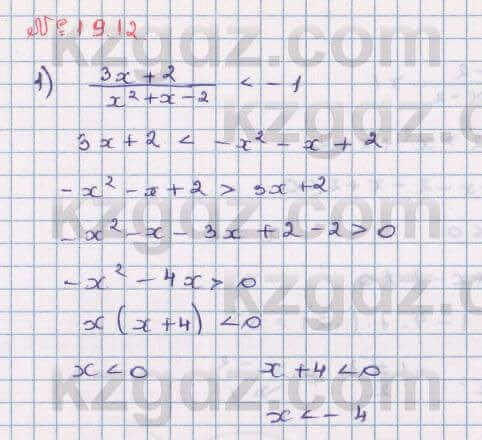 № 19.12
1) (3x + 2)/(x² + x - 2) < - 1
3x + 2 < - x² - x + 2
- x² - x + 2 > 3x + 2
- x² - x - 3x + 2 - 2 > 0
- x² - 4x > 0
x (x + 4) < 0
x < 0 x + 4 < 0
x < - 4
kzgdz.com
kzgdz.com
kzgdz.com
kzgdz.com